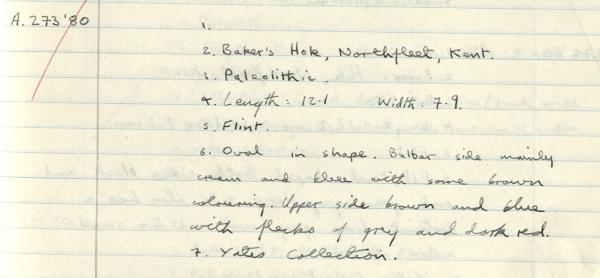 A.273'80
1.
2. Baker's Hole, Northfleet, Kent.
3. Paleolithic.
4. Length: 12.1 Width: 7.9.
5. Flint.
6. Oval in shape. Bulbar side mainly
cream and blue with some brown
colouring. Upper side brown and blue
with flecks of grey and dark red.
7. Yates Collection.